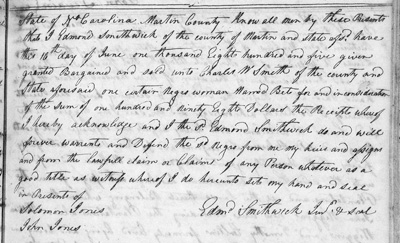 State of No. Carolina Martin County Know all men by these Presents
that I Edmond Smithwick of the county of Martin and state afsd. have
this 16th day of June one thousand Eight hundred and five given
granted Bargained and sold unto Charles W Smith of the county and
State aforesaid one certain negro woman Named Bet for and in consideration
of the sum of one hundred and ninety Eight Dollars the Receipte whereof
I hereby acknowledge and I the sd Edmond Smithwick do and will
forever warrent and Defend the sd negro from me my heirs and assigns
and from the lawfull claim or Claims of any Person whatever as a
good title as witness whereof I do hereunto sete my hand and seal
in Presents of
Solomon Jones
Edmd Smithwick & seal
John Jones